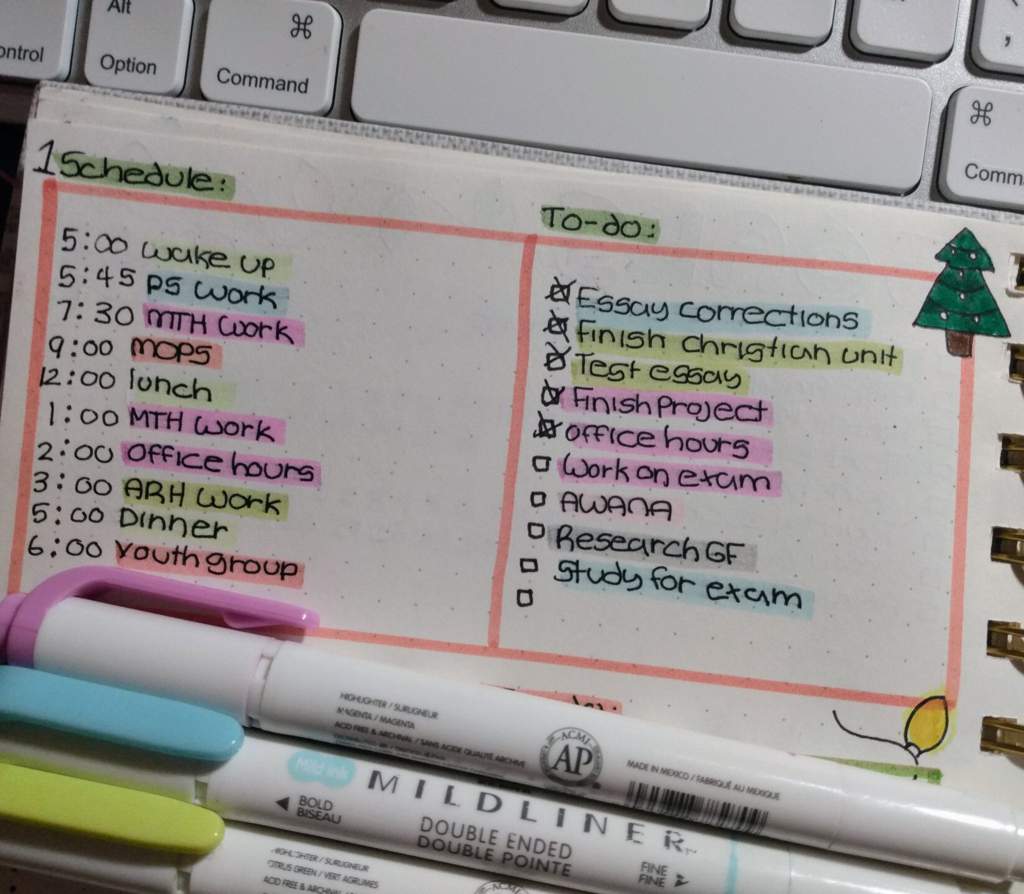 Alt
ontrol
Option
⌘
Command
⌘
Comm
,
1 Schedule:
5:00 wake up
5:45 PS work
7:30 MTH work
9:00 MOPS
12:00 lunch
1:00 MTH work
2:00 office hours
3:00 ARH work
5:00 Dinner
6:00 youth group
To-do:
Essay corrections
Finish christian unit
Test essay
Finish Project
office hours
work on exam
AWANA
Research GF
Study for exam
HIGHLIGHTER / SURLIGNEUR
MAGENTA / MAGENTA
ACID FREE & ARCHIVAL / SANS ACIDE QUALITÉ ARCHIVE
ACMI
AP
MADE IN MEXICO / FABRIQUÉ AU MEXIQUE
Mild ink
MILDLINER
BOLD
BISEAU
DOUBLE ENDED
DOUBLE POINTE
FINE
FINE
HIGHLIGHTER / SURLIGNEUR
CITRUS GREEN / VERT AGRUMES
ACID FREE & ARCHIVAL
ACMI